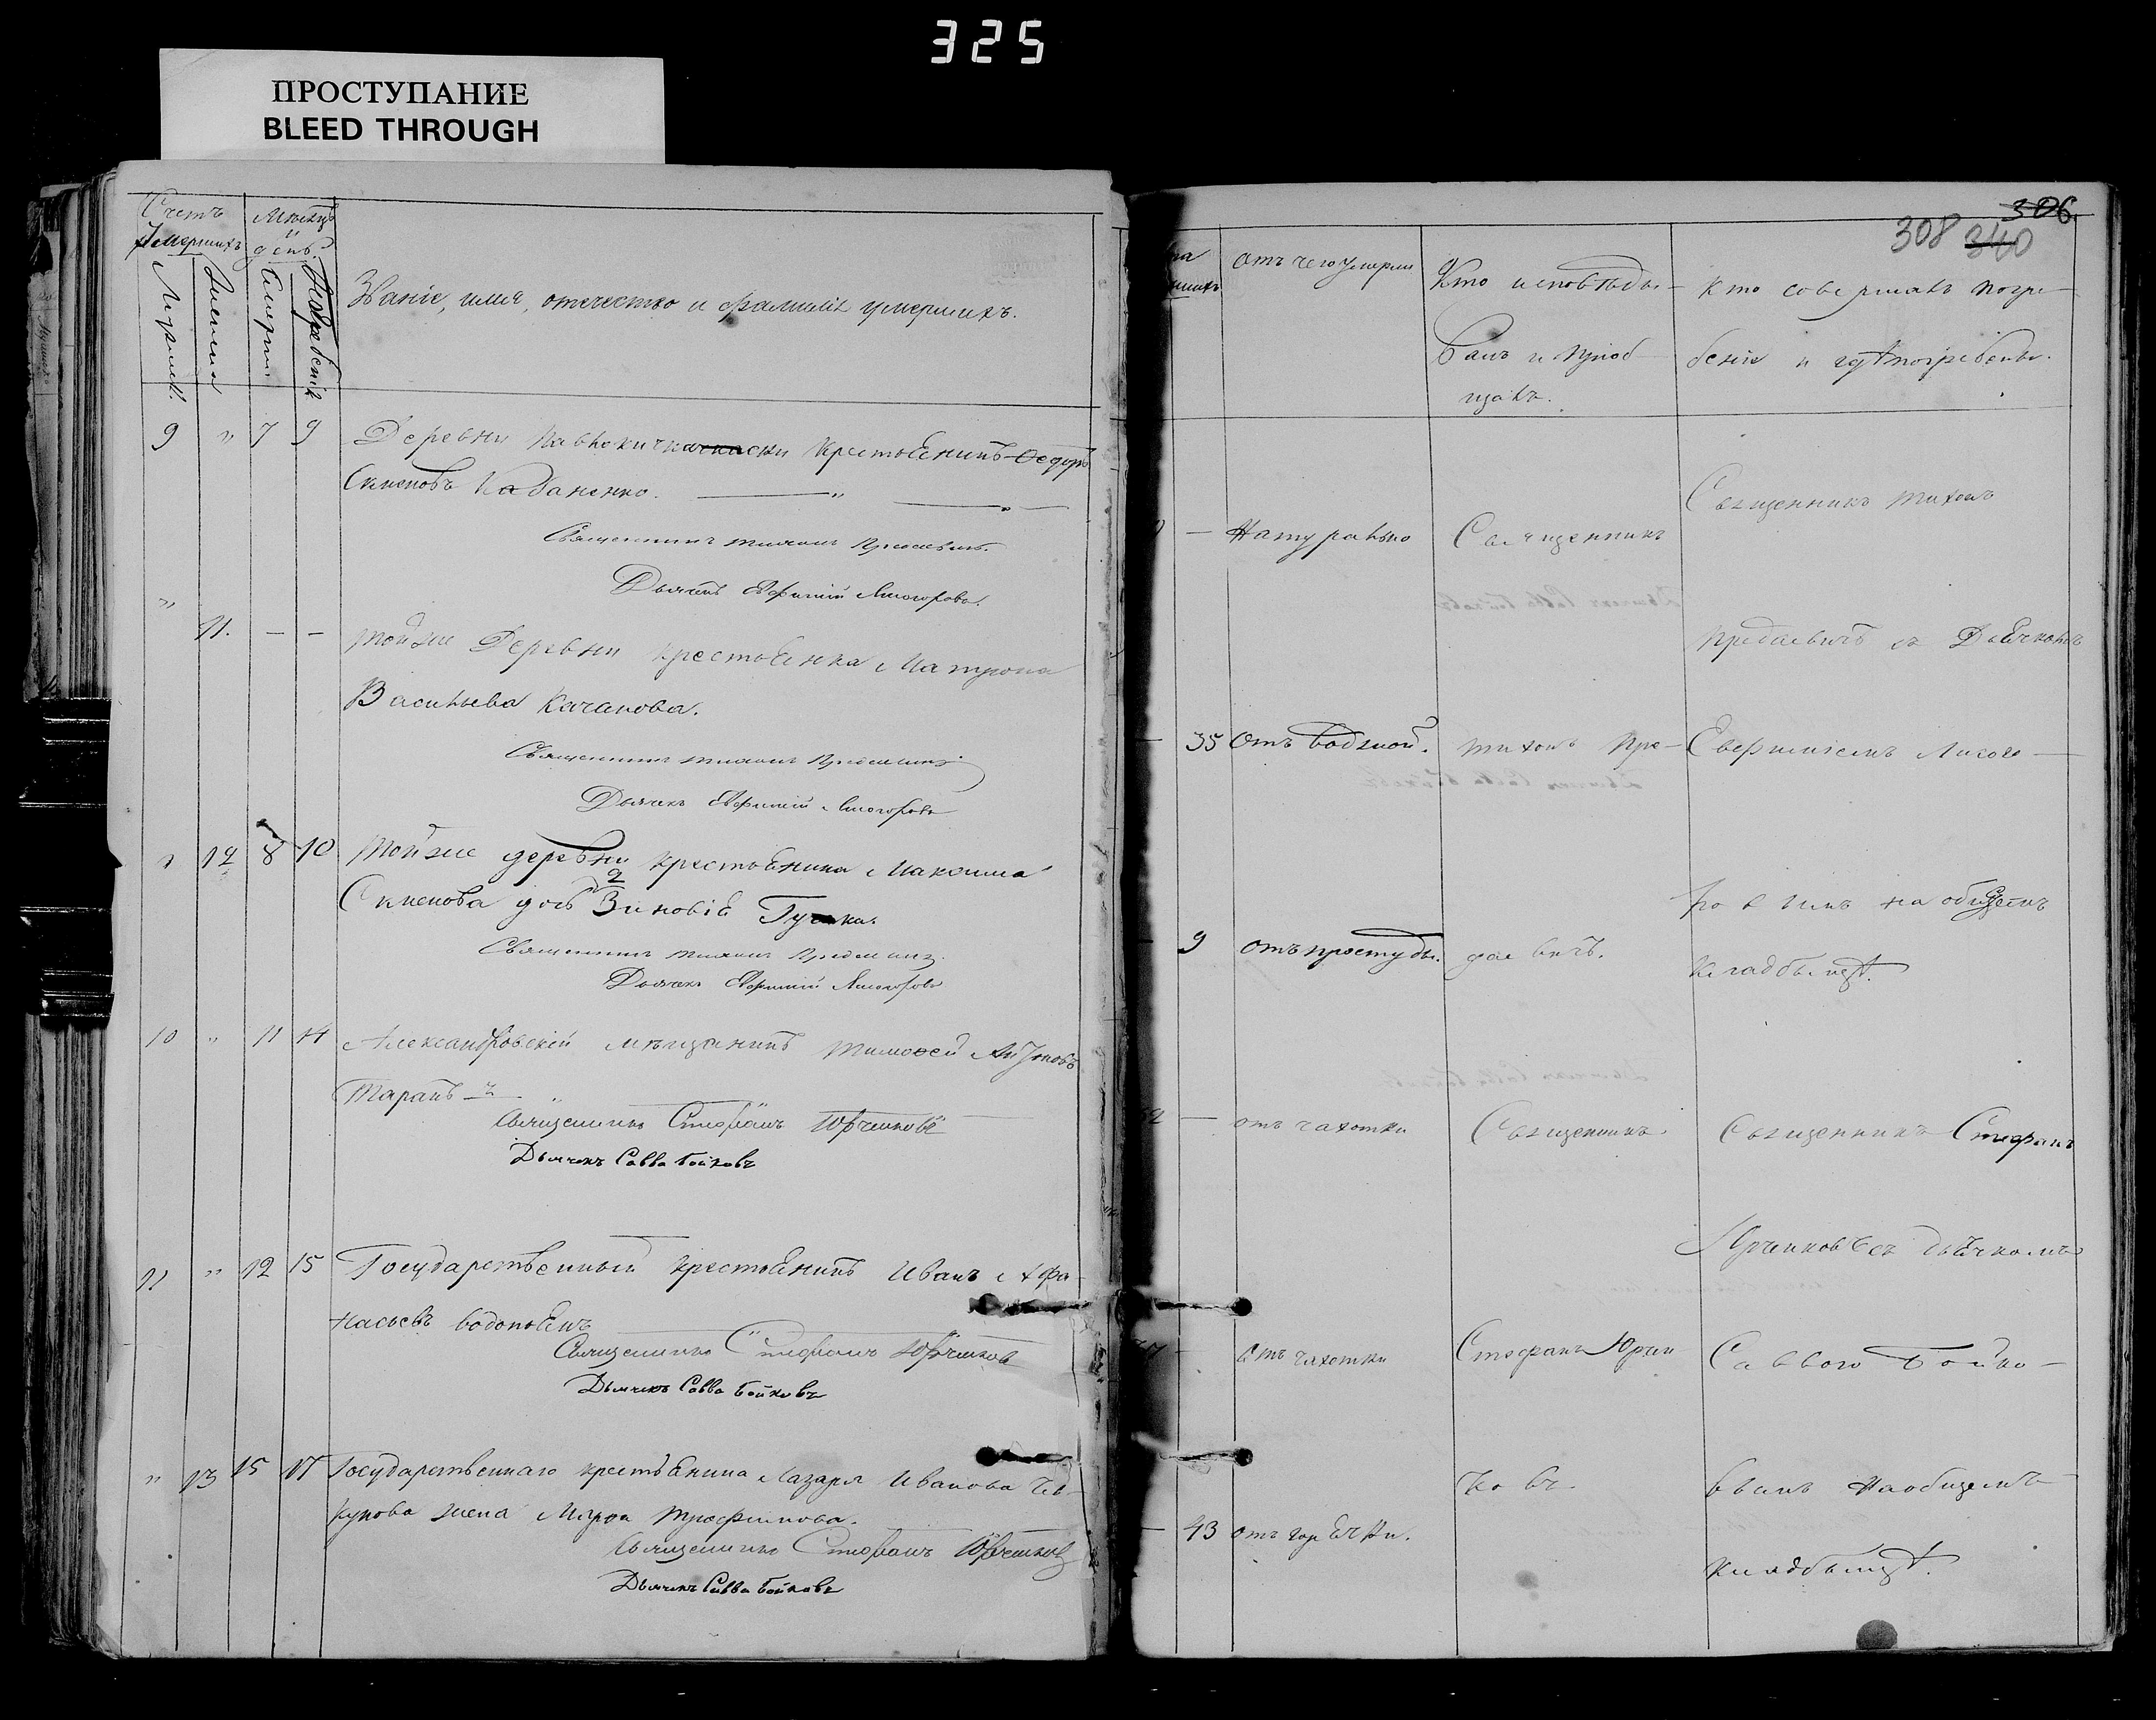 325
ПРОСТУПАНИЕ
BLEED THROUGH
Счетъ
умершихъ
Мѣсяцъ
и
день.
Мужеск.
Женска
Смерти
Погребенія
Званіе, имя, отечество и фамилія умершихъ.
9 " 7 9 Деревни крестьянинъ Ѳедоръ
Кабаненко.
Священникъ Тихонъ
Дьячекъ Евфимій
" 11. — — Тойже Деревни крестьянка Матрона
Васильева Качанова.
Священникъ Тихонъ
Дьячекъ Евфимій
" 12 8 10 Тойже деревни крестьянина Максима
дочь Зиновія
Священникъ Тихонъ
Дьячекъ Евфимій
10 " 11 14 Александровскій мѣщанинъ Тимоѳей
Таранъ
Священникъ Стефанъ Юрченковъ
Дьячекъ Савва Бойковъ
11 " 12 15 Государственный крестьянинъ Иванъ Афа-
насьевъ Водопьянъ
Священникъ Стефанъ Юрченковъ
Дьячекъ Савва Бойковъ
" 13 15 17 Государственнаго крестьянина Лазаря Иванова
жена Трофимова.
Священникъ Стефанъ Юрченковъ
Дьячекъ Савва Бойковъ
306.
308 340
отъ чего умерли
Кто исповѣды-
валъ и пріоб-
щалъ.
Кто совершалъ погре-
беніе и гдѣ погребены.
— Натурально Священникъ
Священникъ Тихонъ
съ Дьячкомъ
35 Отъ водяной. Тихонъ Пре-
Евфиміемъ Лисого-
на общемъ
9 отъ простуды.
кладбищѣ.
— отъ чахотки Священникъ Священникъ Стефанъ
Юрченковъ съ дьячкомъ
отъ чахотки Стефанъ Юрчен Саввою Бойко-
ковъ. вымъ на общемъ
43 отъ горячки.
кладбищѣ.